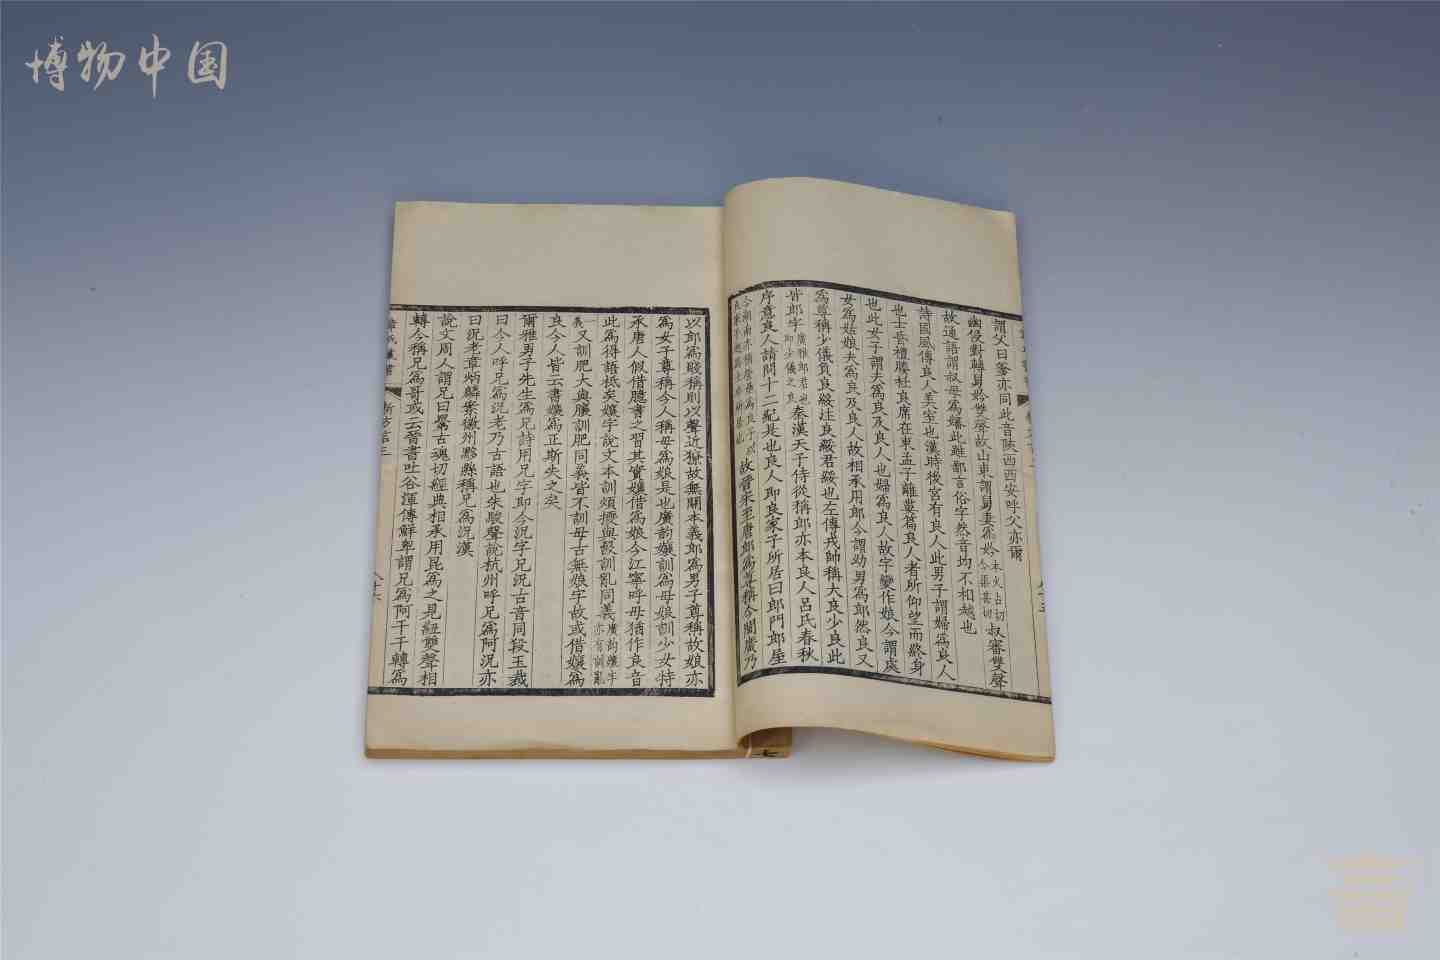 博物中国
謂父曰爹亦同此音陝西西安呼父亦爾
幽侵對轉
故通語謂叔母為嬸此雖鄙言俗字然音均不相越也
詩國風傳良人美室也漢時後宮有良人此男子謂婦為良人
也士昏禮媵衽良席在東孟子離婁篇良人者所仰望而終身
也此女子謂夫為良及良人也婦為良人故字變作娘今謂處
女為姑娘夫為良及良人故相承用郎今謂幼男為郎然良又
為尊稱少儀負良綏注良綏君綏也左傳戎帥稱大良少良此
皆郎字廣雅郎君也即少儀之良秦漢天子侍從稱郎亦本良人呂氏春秋
序意良人請問十二紀是也良人即良家子所居曰郎門郎屋
故晉宋至唐郎為尊稱今閩廣乃
以郎為賤稱則以聲近獠故無關本義郎為男子尊稱故娘亦
為女子尊稱今人稱母為娘是也廣韵孃訓為母娘訓少女特
承唐人似借臆書之習其實孃借為娘今江寧呼母猶作良音
此為得語柢矣孃字說文本訓煩擾與㕞訓亂同義廣韵孃字亦有訓亂
義又訓肥大與釀訓肥同義皆不訓母古無娘字故或借孃為
良今人皆云書孃為正斯失之矣
爾雅男子先生為兄詩用兄字即今況字兄況古音同段玉裁
曰今人呼兄為況老乃古語也朱駿聲說杭州呼兄為阿況亦
曰況老章炳麟案徽州黟縣稱兄為況漢
說文周人謂兄曰䍡古魂切經典相承用昆為之見紐雙聲相
轉今稱兄為哥或云晉書吐谷渾傳鮮卑謂兄為阿干干轉為
章氏叢書
新方言三